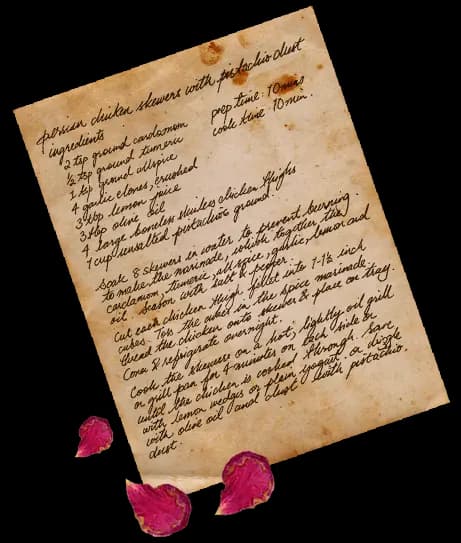 persian chicken skewers with pistachio dust
ingredients
2 tsp ground cardamom
½ tsp ground tumeric
1 tsp ground allspice
4 garlic cloves, crushed
3 tbsp lemon juice
3 tbsp olive oil
4 large boneless skinless chicken thighs
1 cup unsalted pistachios ground.
prep time: 10 mins
cook time 10 min.
Soak 8 skewers in water to prevent burning.
to make the marinade, whisk together the
cardamom, tumeric, allspice, garlic, lemon and
oil. Season with salt & pepper.
Cut each chicken thigh fillet into 1-1½ inch
cubes. Toss the cubes in the spice marinade.
thread the chicken onto skewer & place on tray.
Cover & refrigerate overnight.
Cook the skewers on a hot, lightly oil grill
or grill pan for 4 minutes on each side or
until the chicken is cooked through. Serve
with lemon wedges or plain yogurt or drizzle
with olive oil and dust with pistachio
dust.